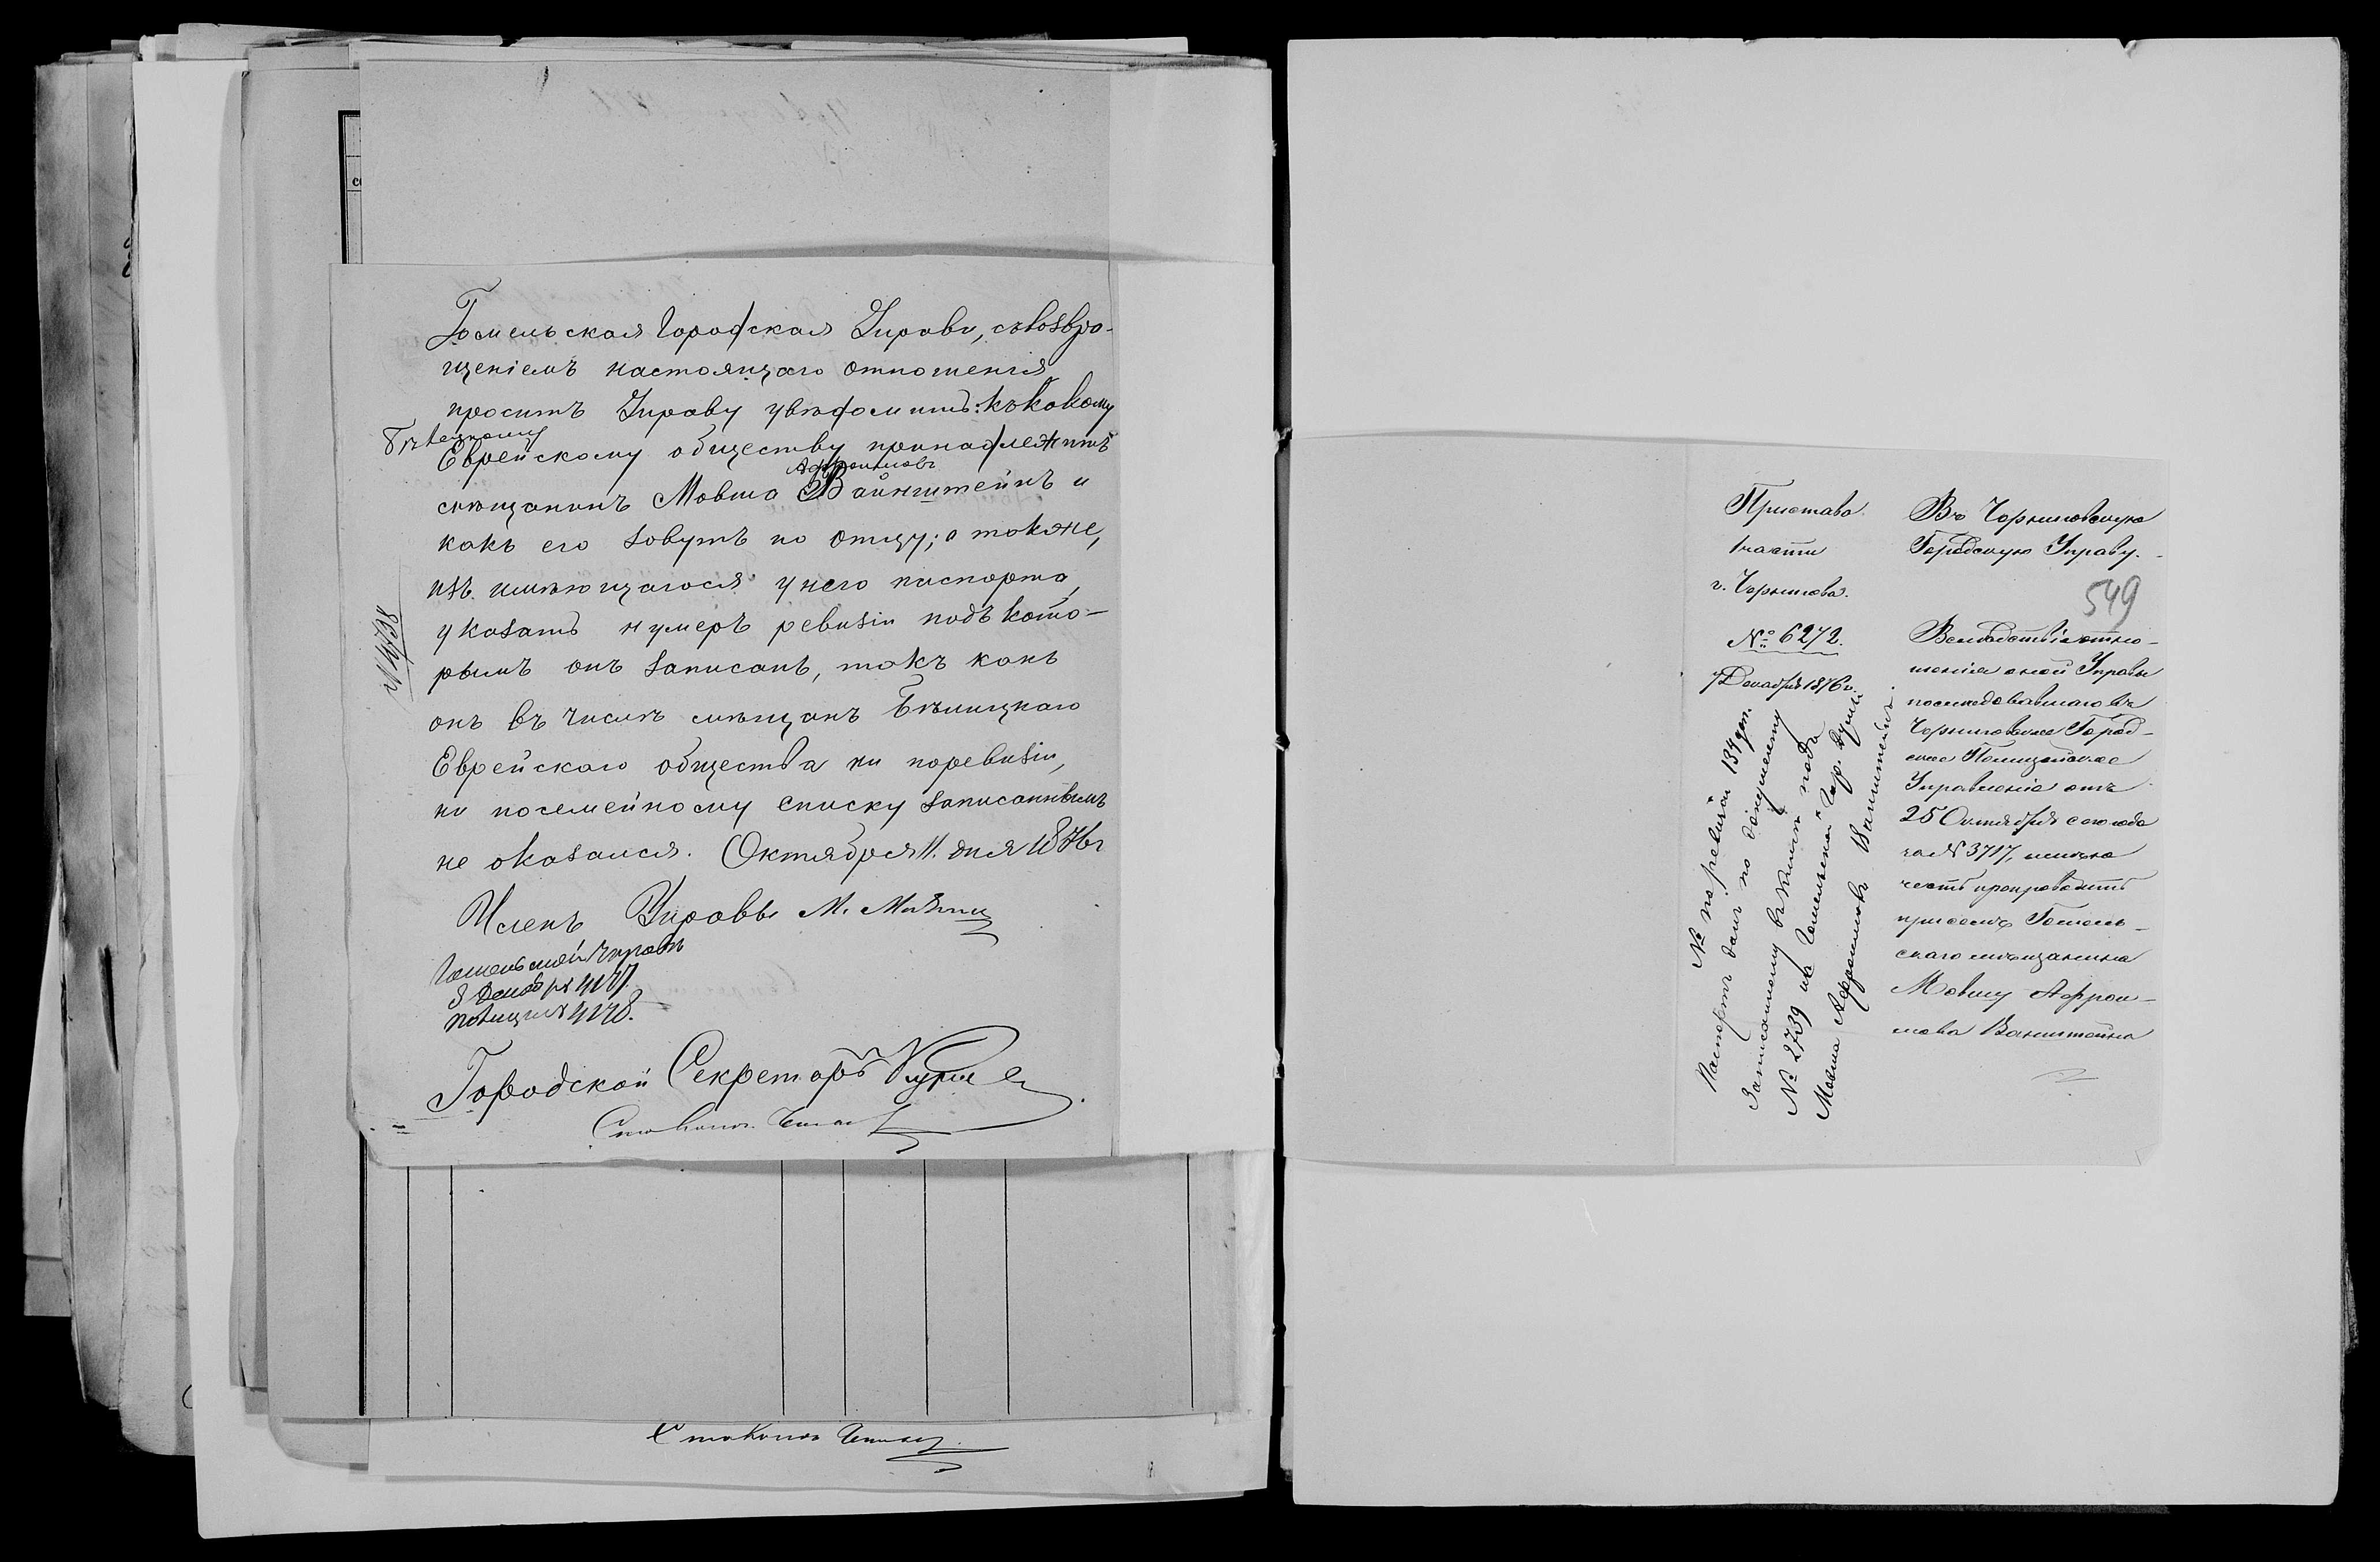 Гомельская Городская Управа, съвозвра-
щеніемъ настоящаго отношенія
проситъ Управу увѣдомить: къкакому
Еврейскому обществу принадлежитъ
Афроимовъ
мѣщанинъ Мовша Вайнштейнъ и
какъ его зовутъ по отцу; а также,
изъ имѣющагося у него паспорта,
указать нумеръ ревизіи подъ кото-
рымъ онъ записанъ, такъ какъ
онъ въ числѣ мѣщанъ Бѣлицкаго
Еврейскаго общества ни поревизіи,
ни посемейному списку записаннымъ
не оказался. Октября 11. дня 1876г
Членъ Управы М.
Гомельской Управѣ
8 Декабря 4177.
Полиціи 4178.
Городской Секретарь
549
Пристава
1 части
г. Чернигова.
№ 6272.
7 Декабря 1876 г.
Въ Черниговскую
Городскую Управу.
Вслѣдствіе отно-
шенія оной Управы
послѣдовавшаго въ
Черниговское Город-
ское Полицейское
Управленіе отъ
25 Октября сего года
за № 3717, имѣю
честь препроводить
при семъ Гомель-
скаго мѣщанина
Мовшу Афрои-
мова Ванштейна
№ по ревизіи 134
Паспортъ данъ по документу
Записанному въ книгѣ подъ
№ 2739 изъ Гомельской Гор. Думы
Мовша Афроимовъ Ванштейнъ.